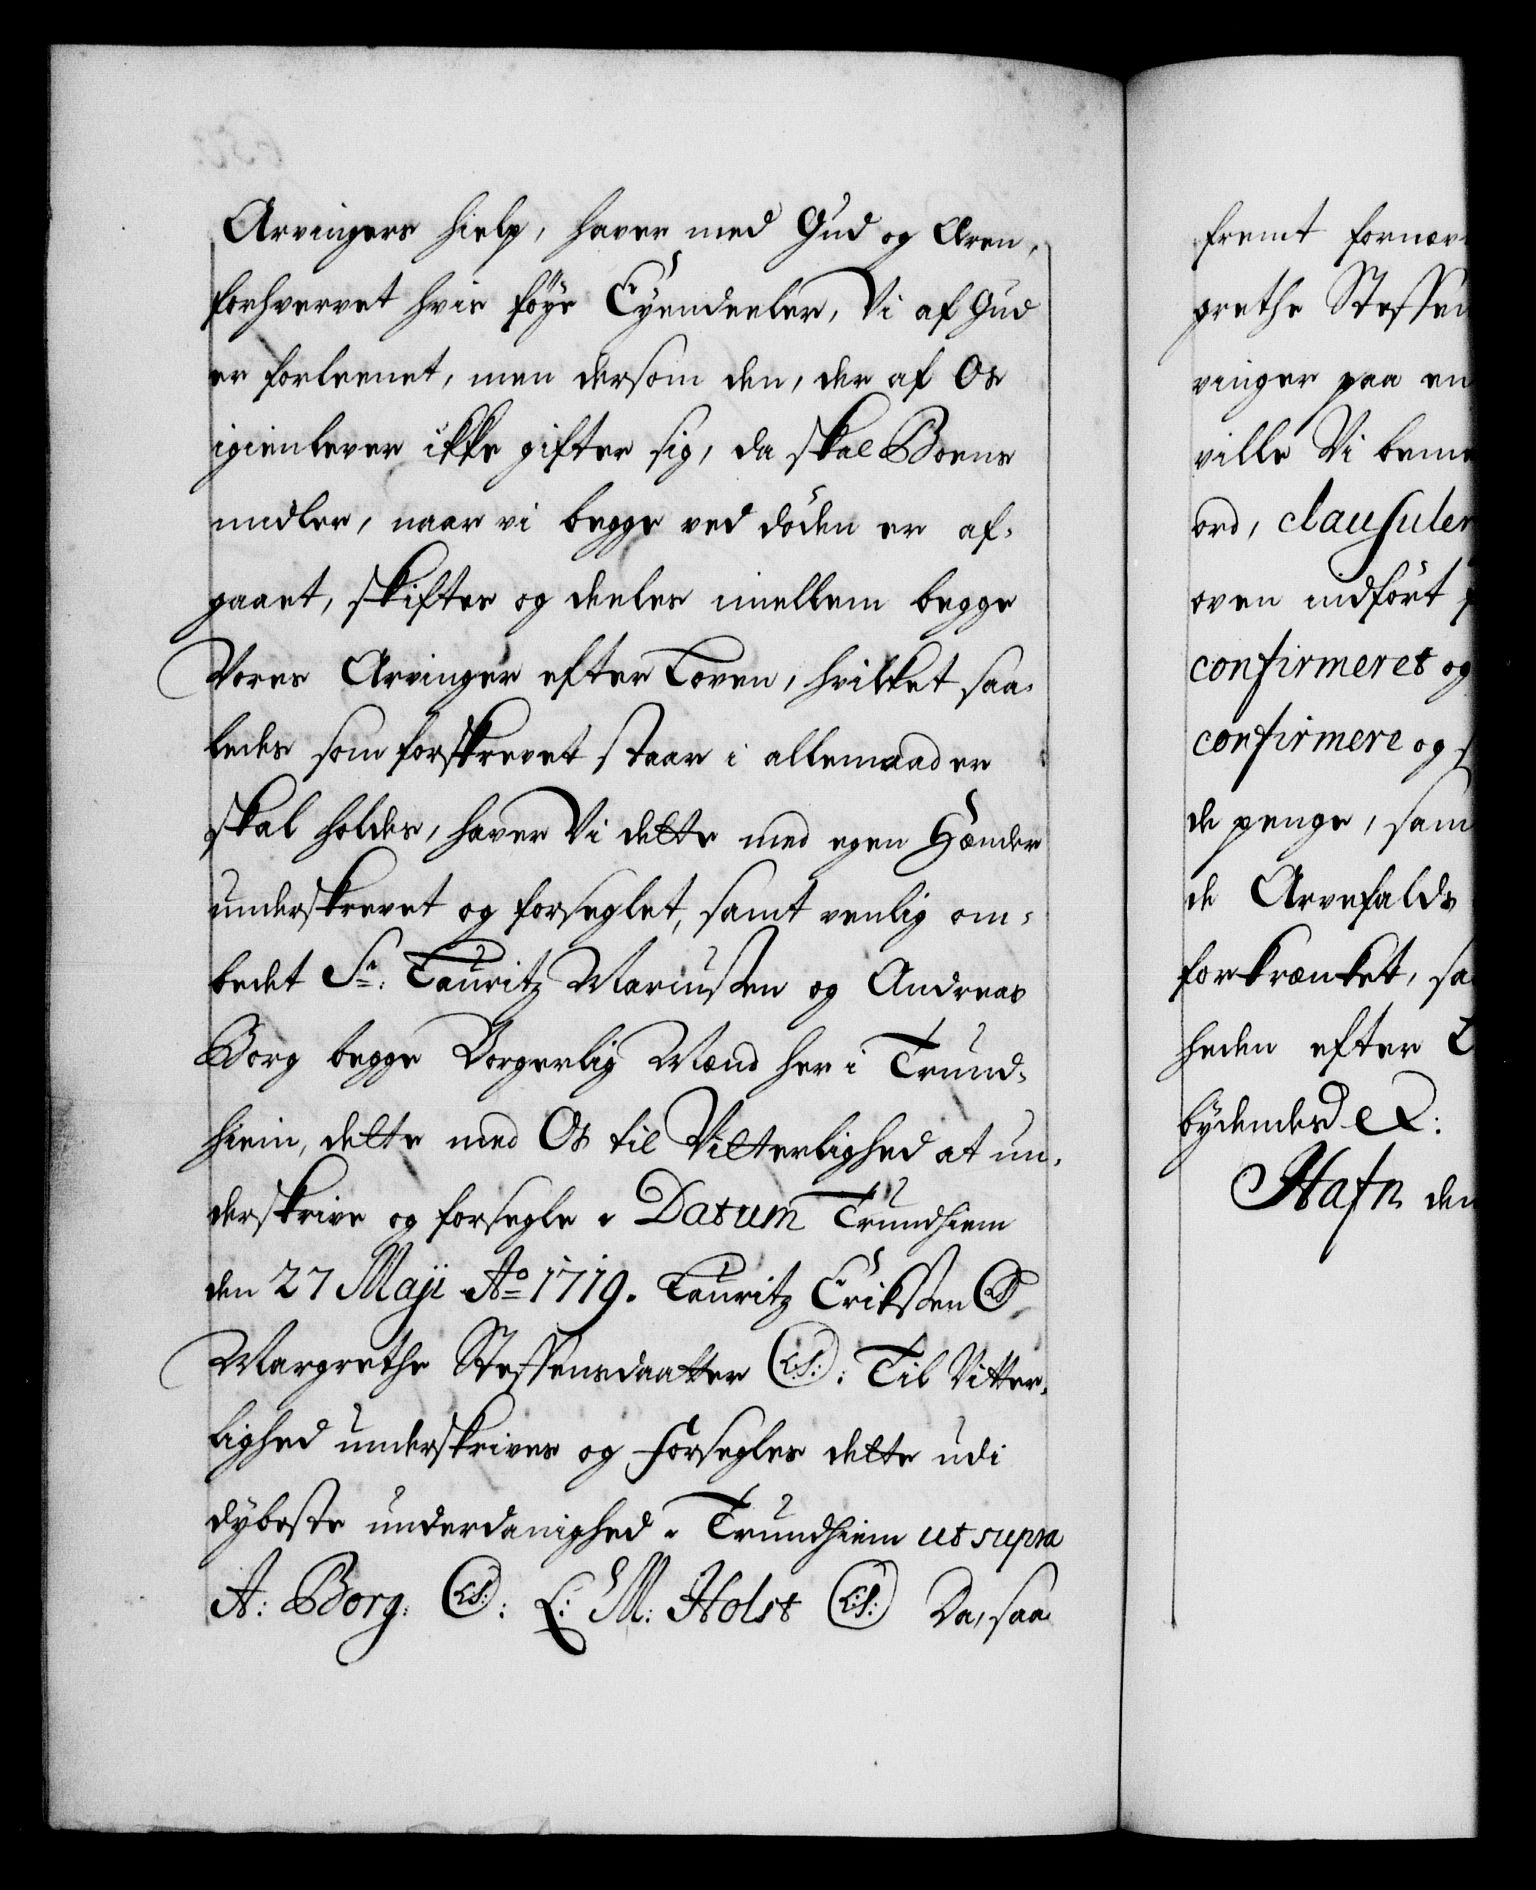 Arvingers hielp, haver med Gud og Æren,
forhvervet hvis föÿe Eÿendeeler, Vi af Gud
er forleenet, men dersom den, der af Os
igienlever ikke gifter sig, da skal Boens
midler, naar vi begge ved döden er af-
gaaet, skiftes og deeles imellem begge
Vores Arvinger efter Loven, hvilket saa-
ledes som forskrevet staar i allemaader
skal holdes, haver Vi dette med egen Hænder
underskrevet og forseglet, samt venlig om-
bedet Sr: Lauritz Mariussen og Andreas
Borg begge Borgerlig Mænd her i Trund-
hiem, dette med Os til Vitterlighed at un-
derskrive og forsegle. Datum Trundhiem
den 27 Maji Ao 1719. Lauritz Erikssen LS
Margrethe Steffensdaatter L.S.: Til Vitter-
lighed underskrives og forsegles dette udi
dybeste underdanighed. Trundhiem ut supra
A: Borg. L.S.: L: M: Holst L.S: Da, saa-
fremt fornæv
grethe Steffen
vinger paa en
ville Vi beme
ord, clausuler
oven indfört
confirmeret og
confirmere og
de penge, sam
de Arvefalds
forkrænket, sa
heden efter L
bÿdendes R:
Hafn den